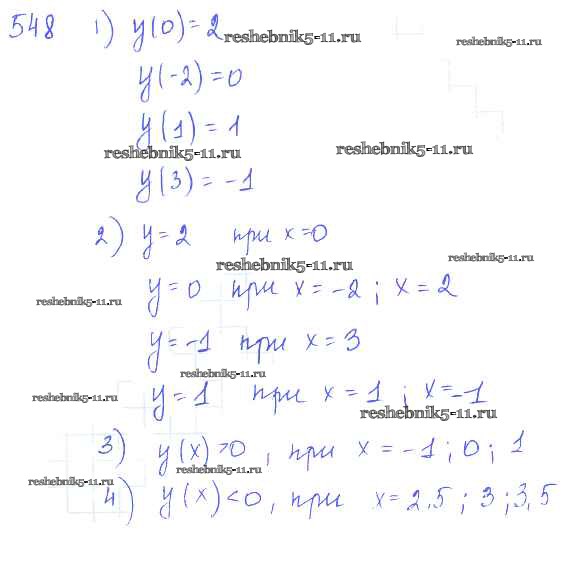 548 1) y(0) = 2 reshebnik5-11.ru reshebnik5-11.ru
y(-2) = 0
y(1) = 1
reshebnik5-11.ru reshebnik5-11.ru
y(3) = -1
2) y = 2 при x = 0
reshebnik5-11.ru reshebnik5-11.ru
y = 0 при x = -2 ; x = 2
reshebnik5-11.ru
y = -1 при x = 3
reshebnik5-11.ru
y = 1 при x = 1 ; x = -1
reshebnik5-11.ru reshebnik5-11.ru
3) y(x) > 0, при x = -1 ; 0 ; 1
reshebnik5-11.ru reshebnik5-11.ru
4) y(x) < 0, при x = 2,5 ; 3 ; 3,5